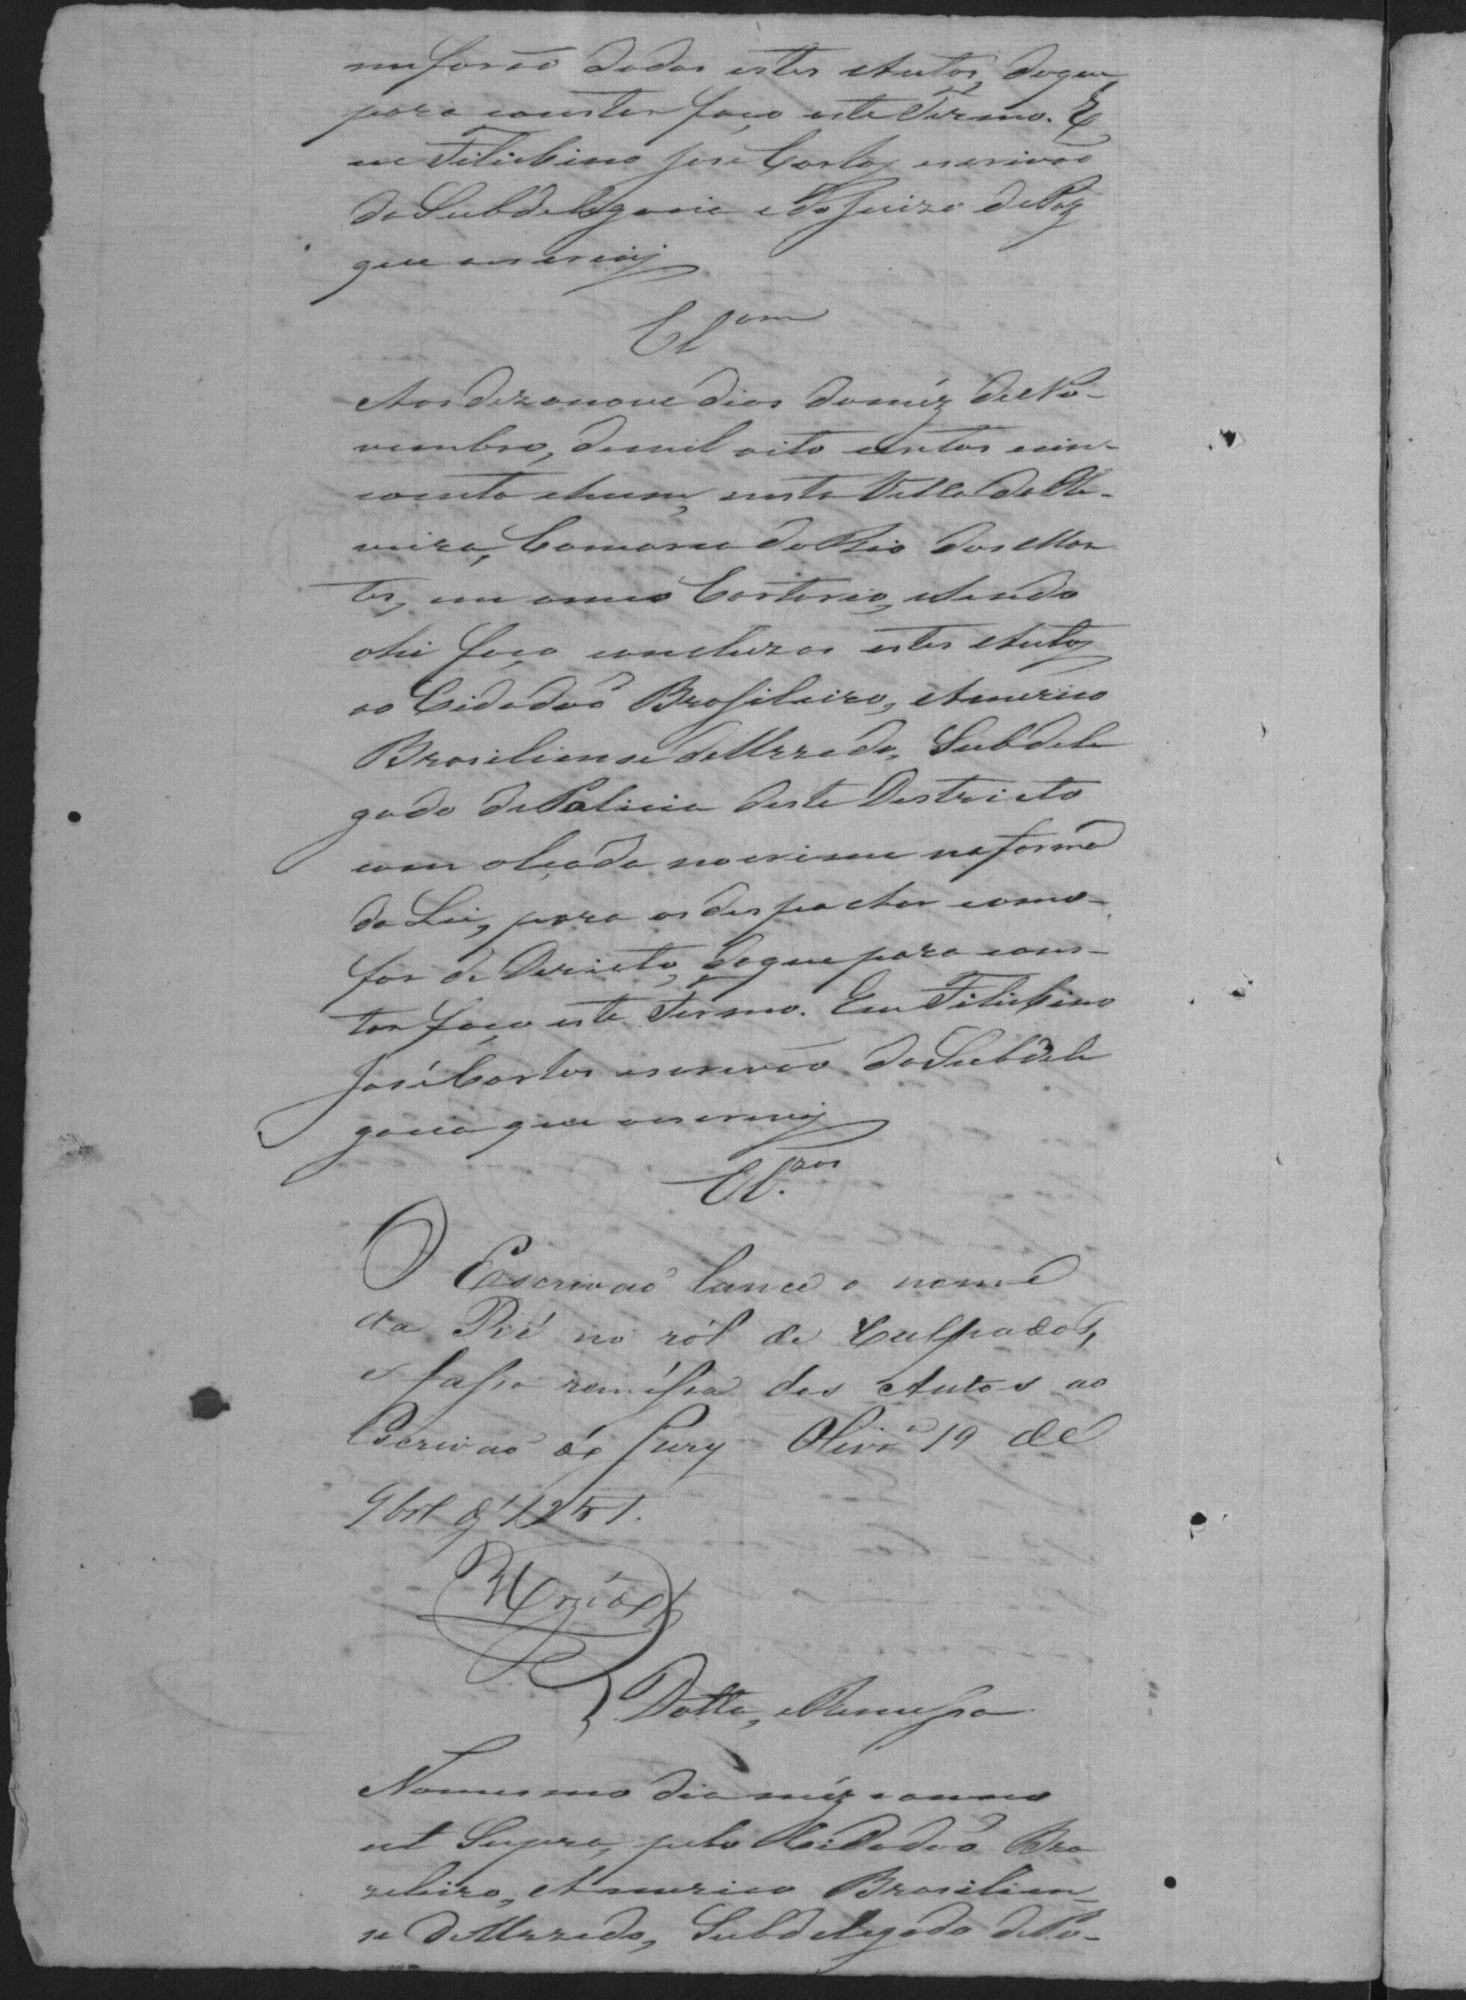 me forão dados estes Autos, do que
para constar faço este Termo. E
eu Felisbino José Cortes escrivão
da Subdelegacia e do Juizo de Paz
que o escrevij
Cl.am
Aos dezanove dias do mêz de No-
vembro, de mil oito centos cin-
coenta e hum, nesta Villa da Oli-
veira, Comarca do Rio das Mor
tes, em o meo Cartorio, e sendo
ahi faço concluzos estes Autos
ao Cidadão Brasileiro, Americo
Brasiliense de Azzedo, Subdele
gado de Policia deste Destricto
com alçada no crime na forma
da Lei, para os despachar como
for de Dericto, do que para cons-
tar faço este Termo. Eu Felisbino
José Cortes escrivão da Subdele
gacia que o escrevij
Cl.zos
O Escrivaõ lance o nome
da Ré no ról de Culpados,
e fassa reméssa dos Autos ao
Escrivaõ do Jury Olivrª 19 de
9brº d' 1851.
Datta, e Remessa
No mesmo dia mêz e anno
ut Supra, pelo Cidadão Bra
zileiro, Americo Brasilien
se de Azzedo, Subdelegado de Po-